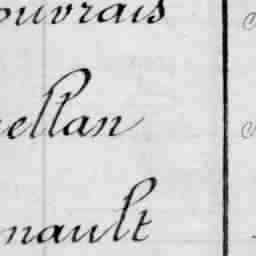 ouvrais
ellan
nault